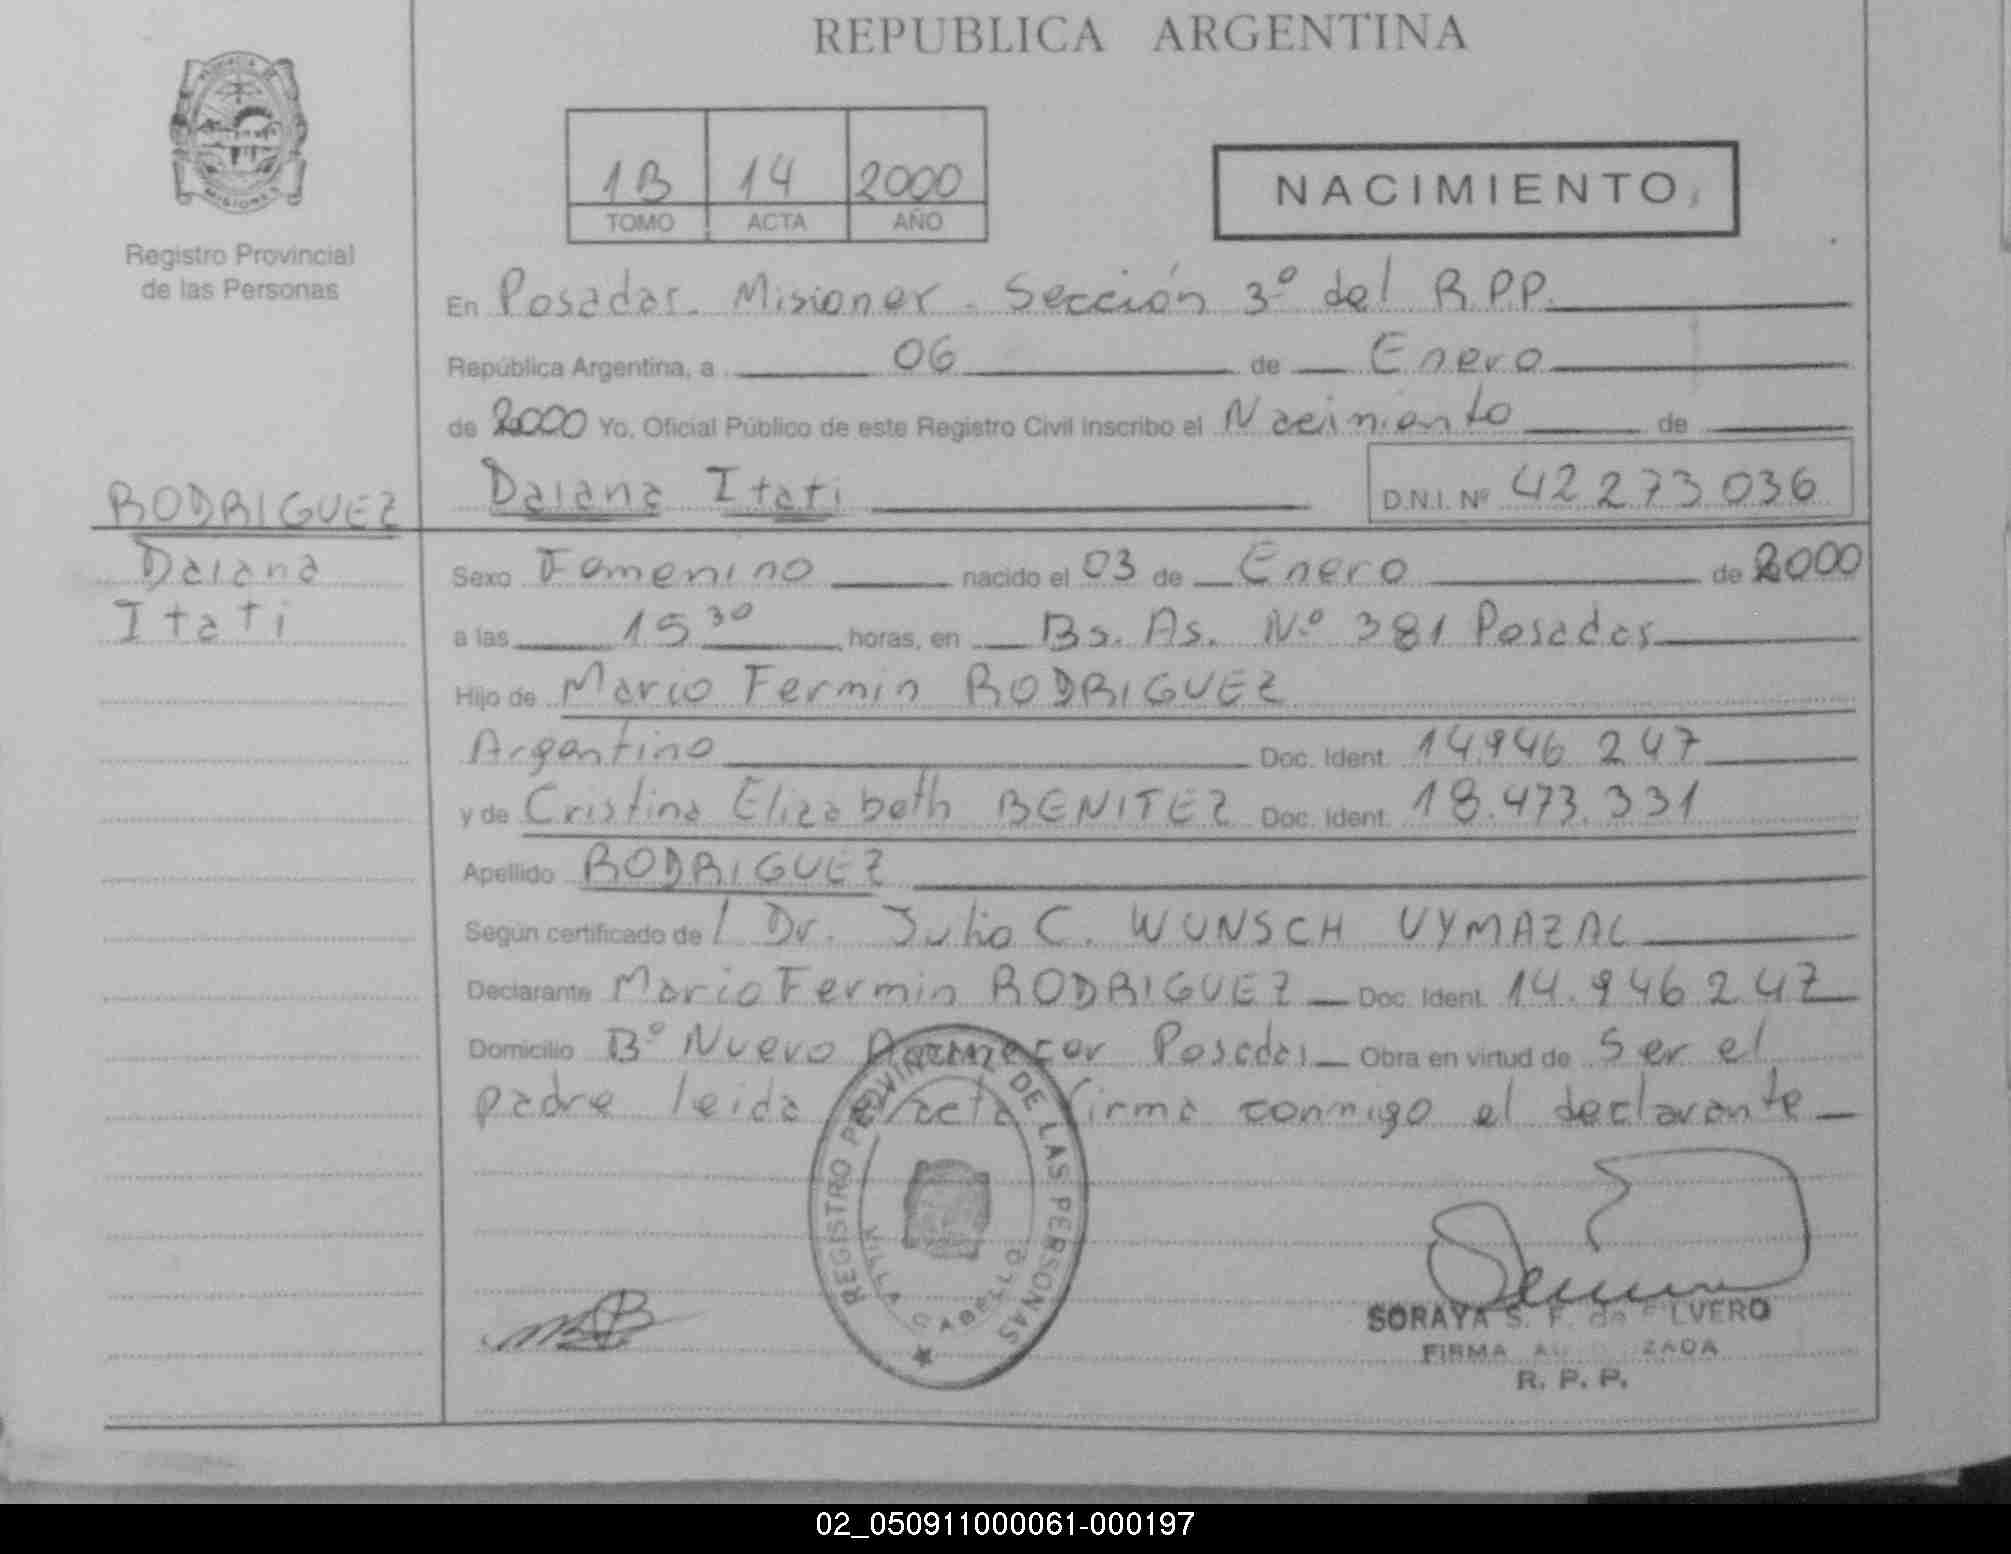 REPUBLICA ARGENTINA
PROVINCIA DE
MISIONES
Registro Provincial
de las Personas
1B 14 2000
TOMO ACTA AÑO
NACIMIENTO
En Posadas. Misiones. Sección 3º del R.P.P.
República Argentina, a 06 de Enero
de 2000 Yo, Oficial Público de este Registro Civil inscribo el Nacimiento de
Daiana Itati D.N.I. Nº 42 273 036
RODRIGUEZ
Daiana
Itati
Sexo Femenino nacido el 03 de Enero de 2000
a las 15 30 horas, en Bs. As. Nº 381 Posadas
Hijo de Mario Fermin RODRIGUEZ
Argentino Doc. Ident. 14.946 247
y de Cristina Elizabeth BENITEZ Doc. Ident. 18.473.331
Apellido RODRIGUEZ
Según certificado de / Dr. Julio C. WUNSCH VYMAZAL
Declarante Mario Fermin RODRIGUEZ Doc. Ident. 14.946 247
Domicilio Bº Nuevo Posadas Obra en virtud de Ser el
padre leida acta firma conmigo el declarante
REGISTRO PROVINCIAL DE LAS PERSONAS
VILLA CABELLO
SORAYA S. F. de
FIRMA
R. P. P.
02_050911000061-000197